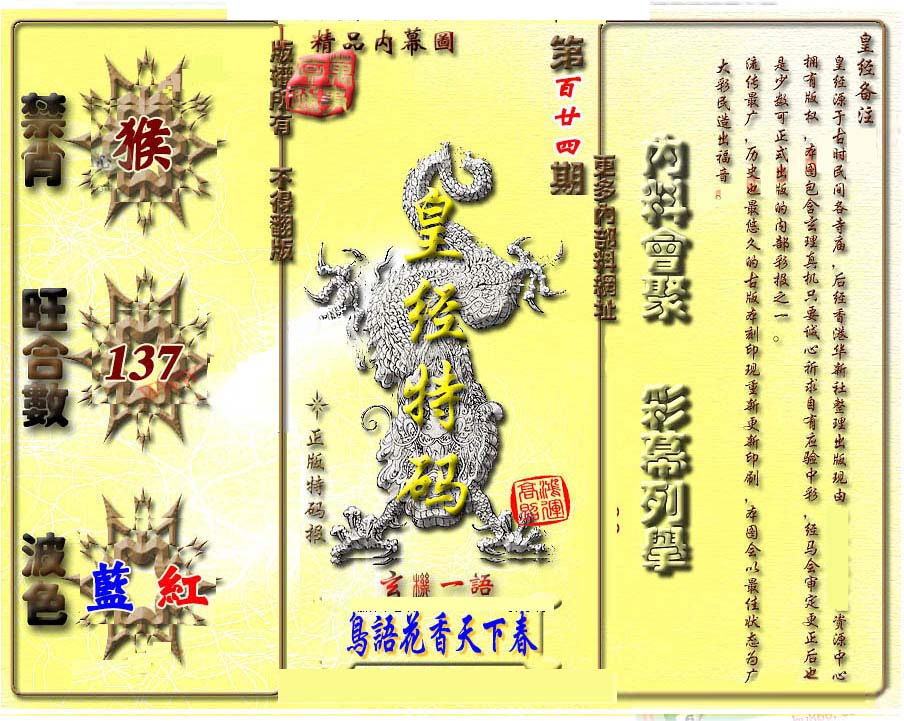 精品内幕圖
版權所有 不得翻版
第百廿四期
更多内部料網址
禁肖
猴
旺合數
137
波色
藍 紅
皇经特码
正版特码报
鴻運高照
玄機一語
鳥語花香天下春
内料會聚
彩幕列擧
皇经备注
皇经源于古时民间各寺庙，后经香港华新社整理出版现由 资源中心
拥有版权，本图包含玄理真机只要诚心祈求自有应验中彩，经马会审定更正后也
是少数可正式出版的内部彩报之一。
流传最广，历史也最悠久的古版本刻印现重新更新印刷，本图会以最佳状态为广
大彩民造出福音